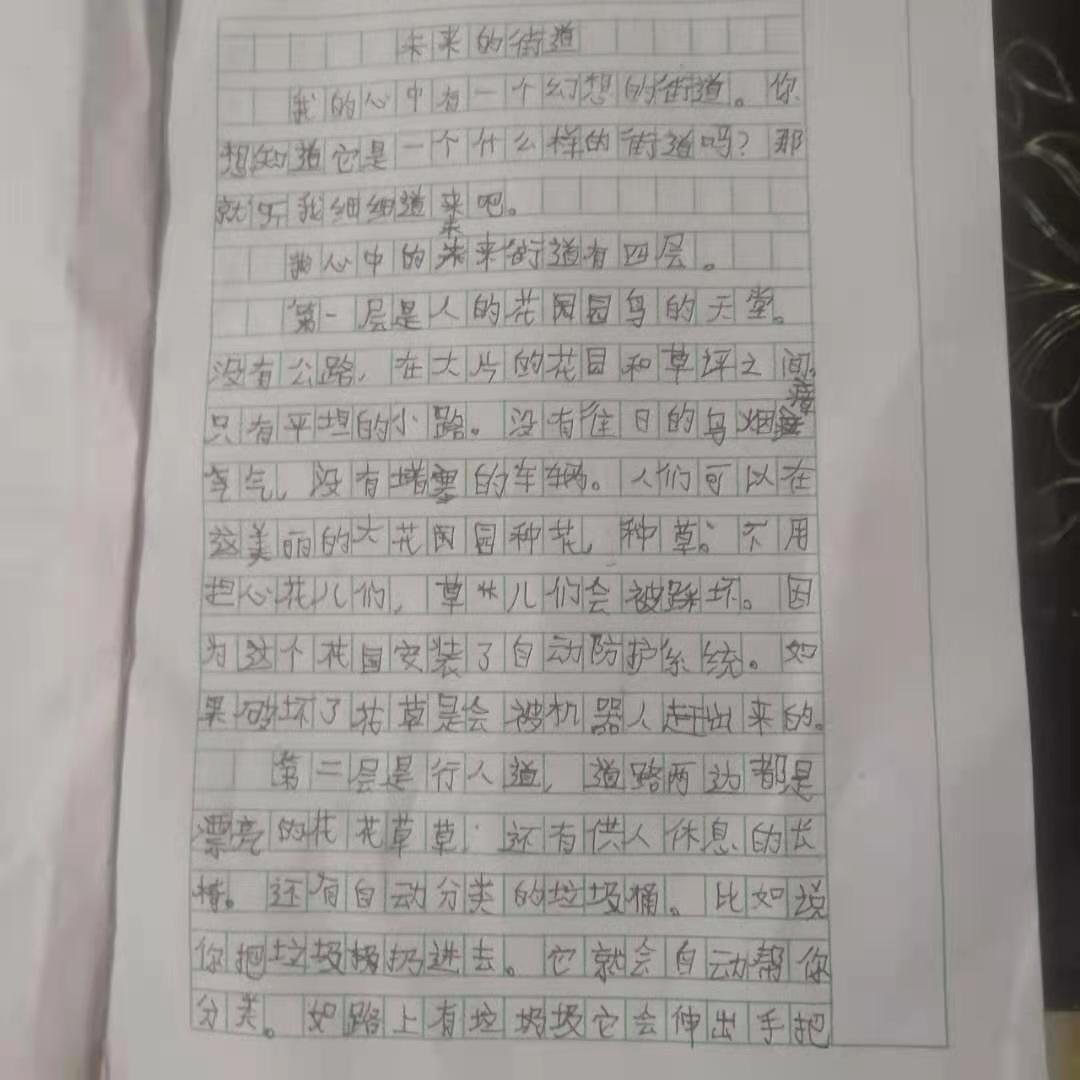 未来的街道
我的心中有一个幻想的街道。你
想知道它是一个什么样的街道吗？那
就听我细细道来吧。
我心中的未来街道有四层。
第一层是人的花园鸟的天堂。
没有公路，在大片的花园和草坪之间，
只有平坦的小路。没有往日的乌烟瘴
气，没有堵塞的车辆。人们可以在
这美丽的大花园种花，种草。不用
担心花儿们，草儿们会被踩坏。因
为这个花园安装了自动防护系统。如
果破坏了花草是会被机器人赶出来的。
第二层是行人道，道路两边都是
漂亮的花花草草；还有供人休息的长
椅。还有自动分类的垃圾桶。比如说
你把垃圾扔进去。它就会自动帮你
分类。如路上有垃圾它会伸出手把